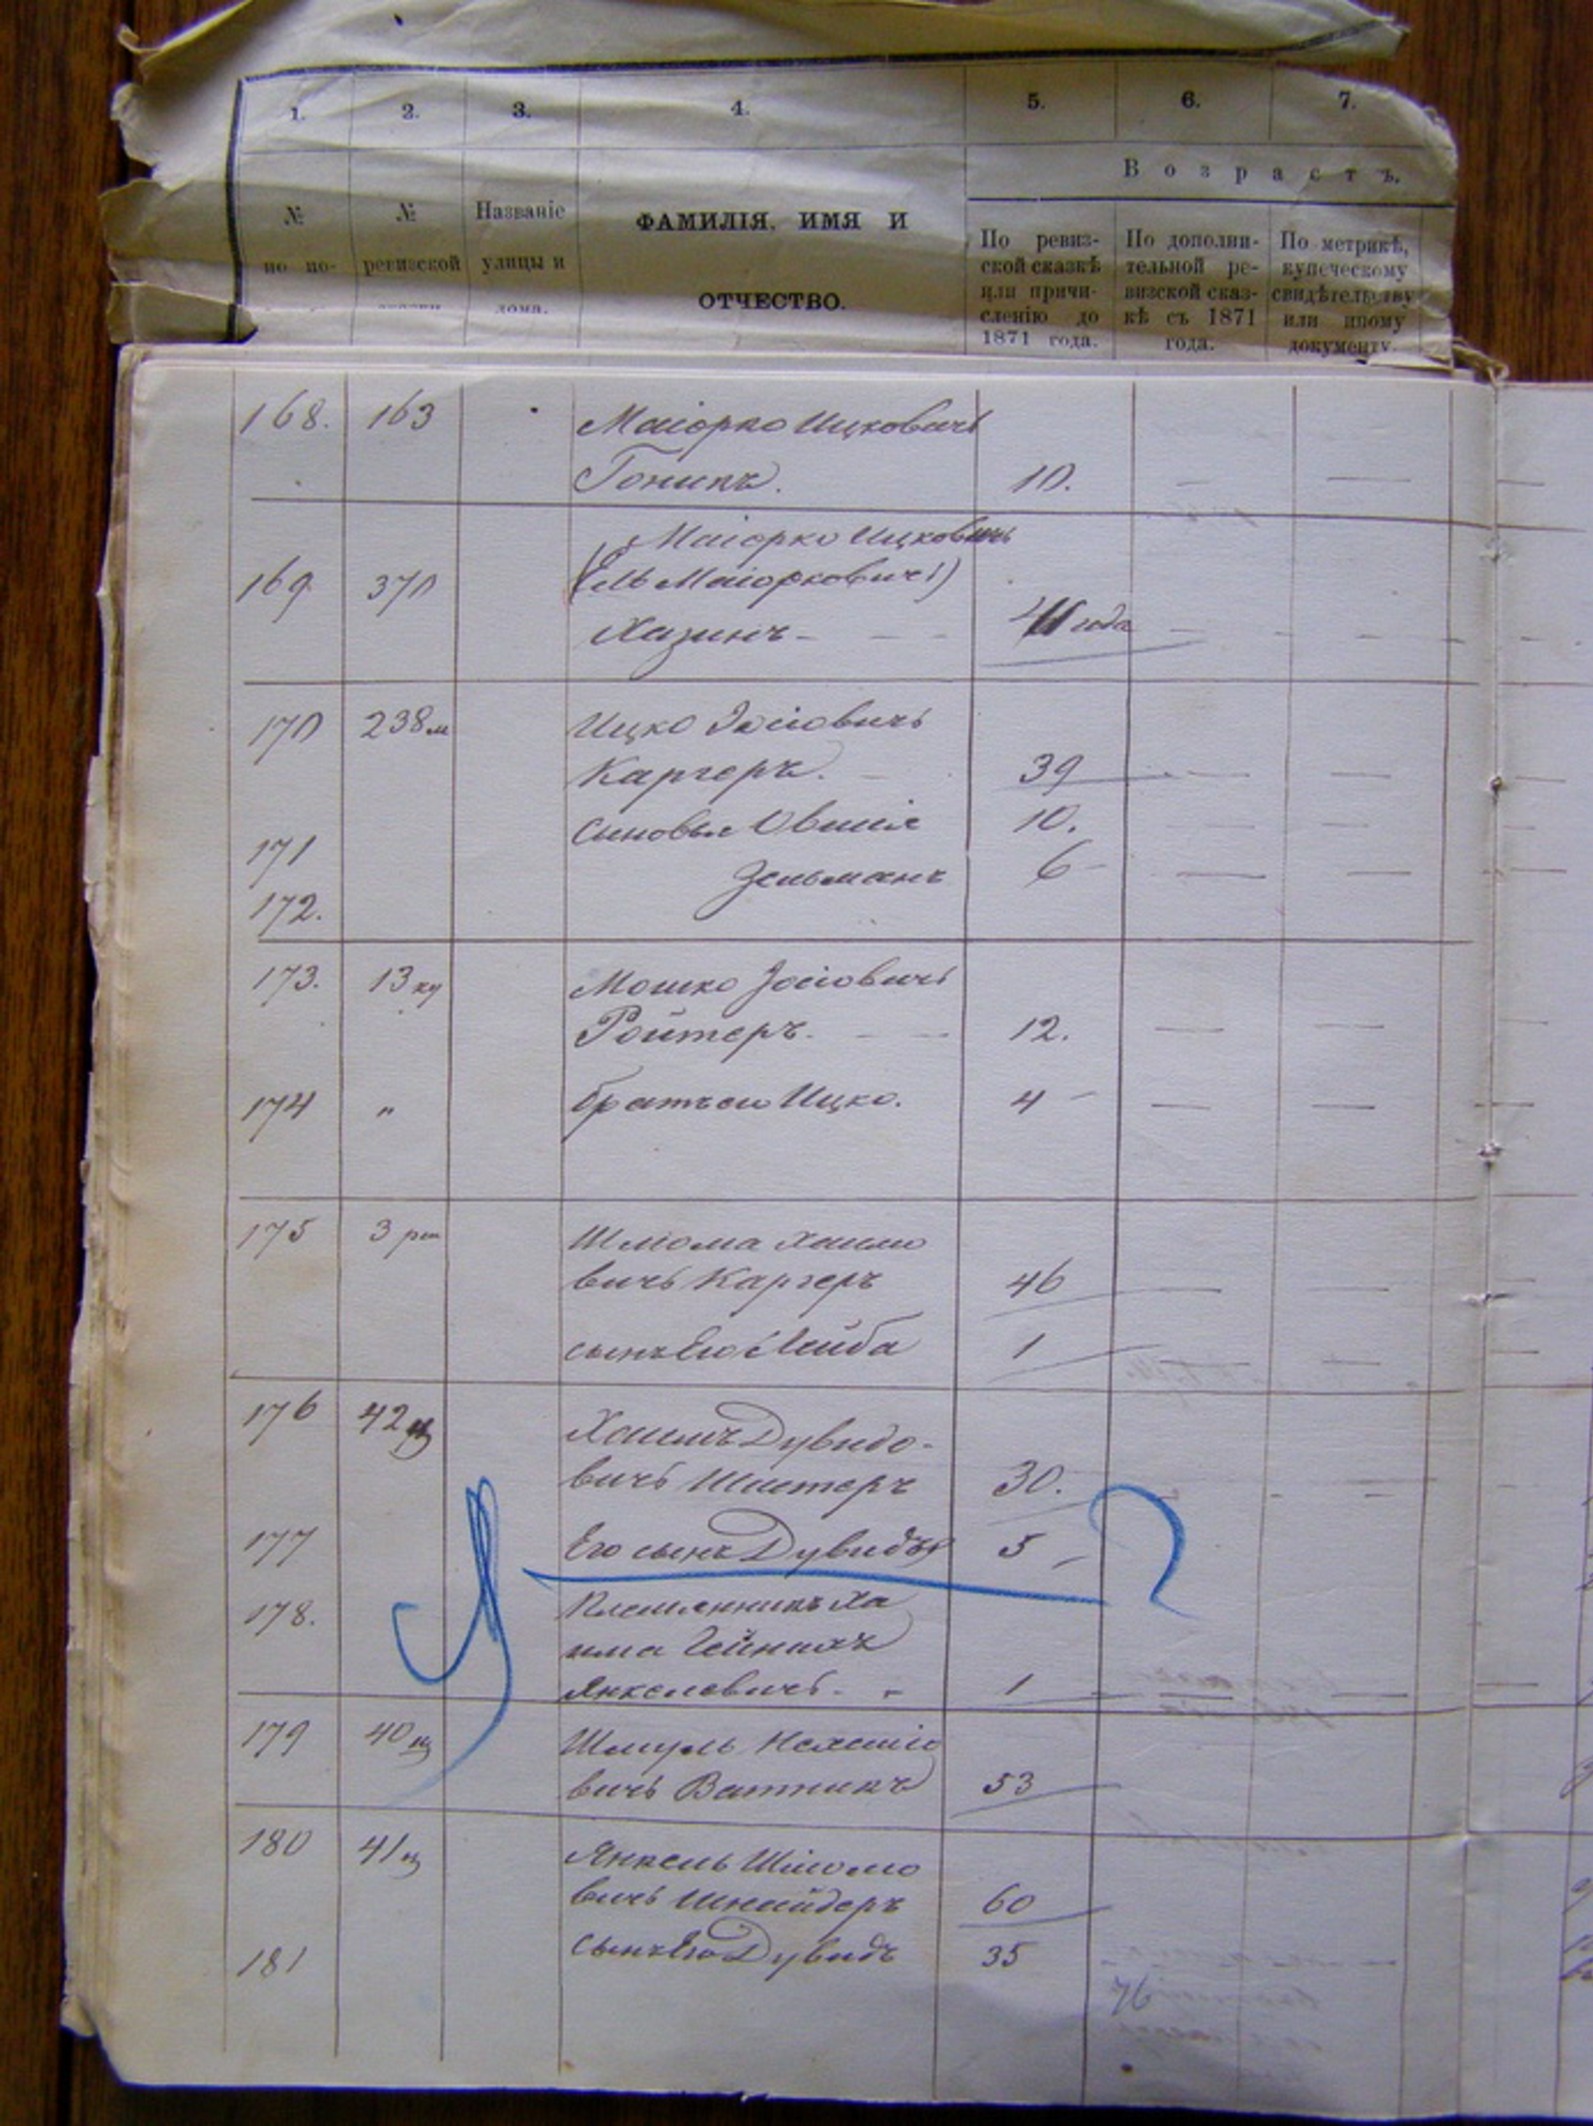 1. 2. 3. 4. 5. 6. 7.
Возрастъ.
№ № Названіе ФАМИЛІЯ, ИМЯ И
по по- ревизской улицы и
дома.
ОТЧЕСТВО.
По ревиз-
ской сказкѣ
или причи-
сленію до
1871 года.
По дополни-
тельной ре-
визской сказ-
кѣ съ 1871
года.
По метрикѣ,
купеческому
свидѣтельству
или иному
документу.
168. 163 Маіорко Ицковичъ
Гоникъ. 10.
Маіорко Ицковичъ
169 370 (Ель Маіорковичъ)
Хазинъ 41 года
170 238м Ицко Іосіовичъ
Каргеръ. 39
171 Сыновья Овшія 10.
172. Зельманъ 6
173. 13 ку Мошко Іосіовичъ
Ройтеръ. 12.
174 „ братъ его Ицко. 4
175 3 Шліома Хаимо
вичъ Каргеръ 46
сынъ Его Лейба 1
176 42 Хаимъ Дувидо-
вичъ Шистеръ 30.
177 Его сынъ Дувидъ 5
178. Племянникъ Ха
има Гейнихъ
Янкелевичъ 1
179 40 Шмуль
вичъ 53
180 41 Янкель Шліомо
вичъ Шнейдеръ 60
181 сынъ Его Дувидъ 35
76